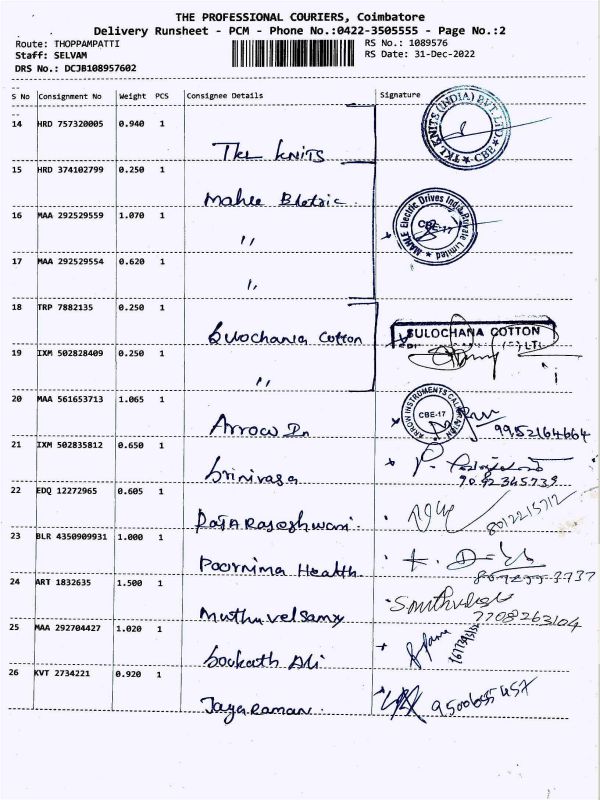 THE PROFESSIONAL COURIERS, Coimbatore
Delivery Runsheet - PCM - Phone No.:0422-3505555 - Page No.:2
Route: THOPPAMPATTI RS No.: 1089576
Staff: SELVAM RS Date: 31-Dec-2022
DRS No.: DCJB108957602
S No Consignment No Weight PCS Consignee Details Signature
14 HRD 757320005 0.940 1
TKL KNITS
TKL KNITS (INDIA) PVT LTD CBE
15 HRD 374102799 0.250 1
Mahle Eletric
MAHLE Electric Drives India Private Limited CBE-17
16 MAA 292529559 1.070 1
"
17 MAA 292529554 0.620 1
"
18 TRP 7882135 0.250 1
Sulochana Cotton
SULOCHANA COTTON
19 IXM 502828409 0.250 1
"
20 MAA 561653713 1.065 1
Arrow In
ARROW INSTRUMENTS CALIBRATION CBE-17
9952164664
21 IXM 502835812 0.650 1
Srinivasa
9092345739
22 EDQ 12272965 0.605 1
RajaRajeshwari
8012215712
23 BLR 4350909931 1.000 1
Poornima Health
24 ART 1832635 1.500 1
Muthuvelsamy
7708263104
25 MAA 292704427 1.020 1
Sowkath Ali
26 KVT 2734221 0.920 1
Jayaraman